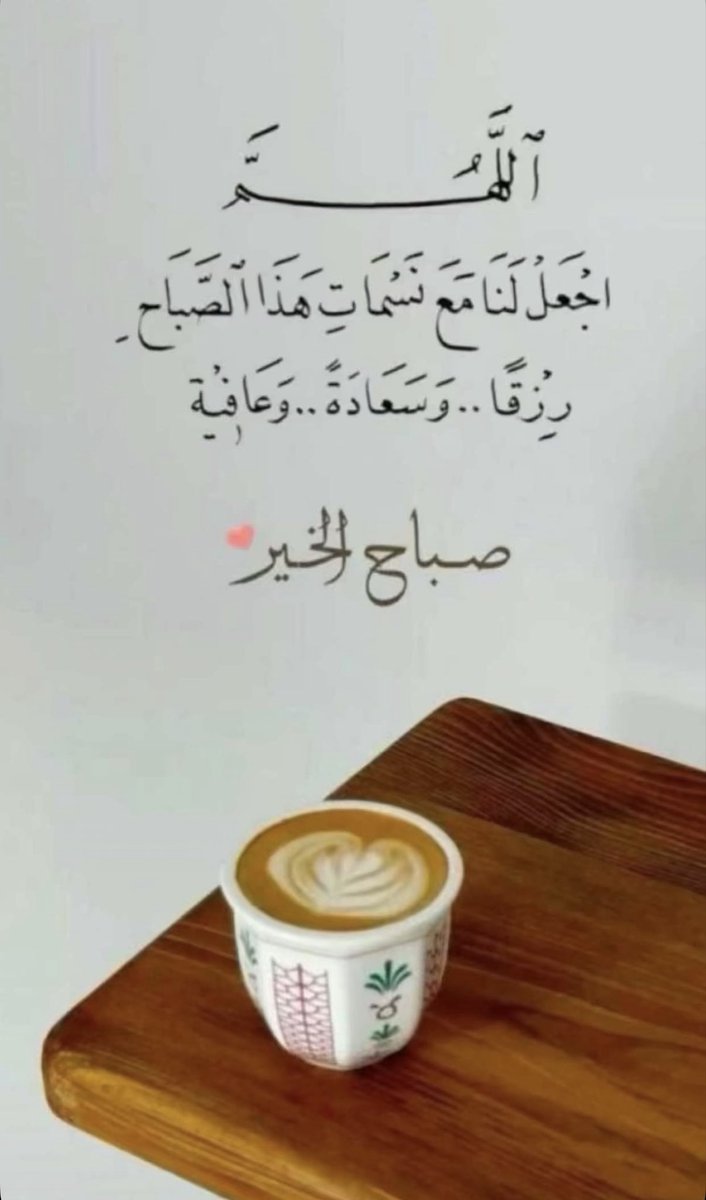 ٱللَّهُمَّ
اجْعَلْ لَنَا مَعَ نَسَمَاتِ هَذَا ٱلصَّبَاحِ
رِزْقًا..وَسَعَادَةً..وَعَافِيَة
صباح الخير